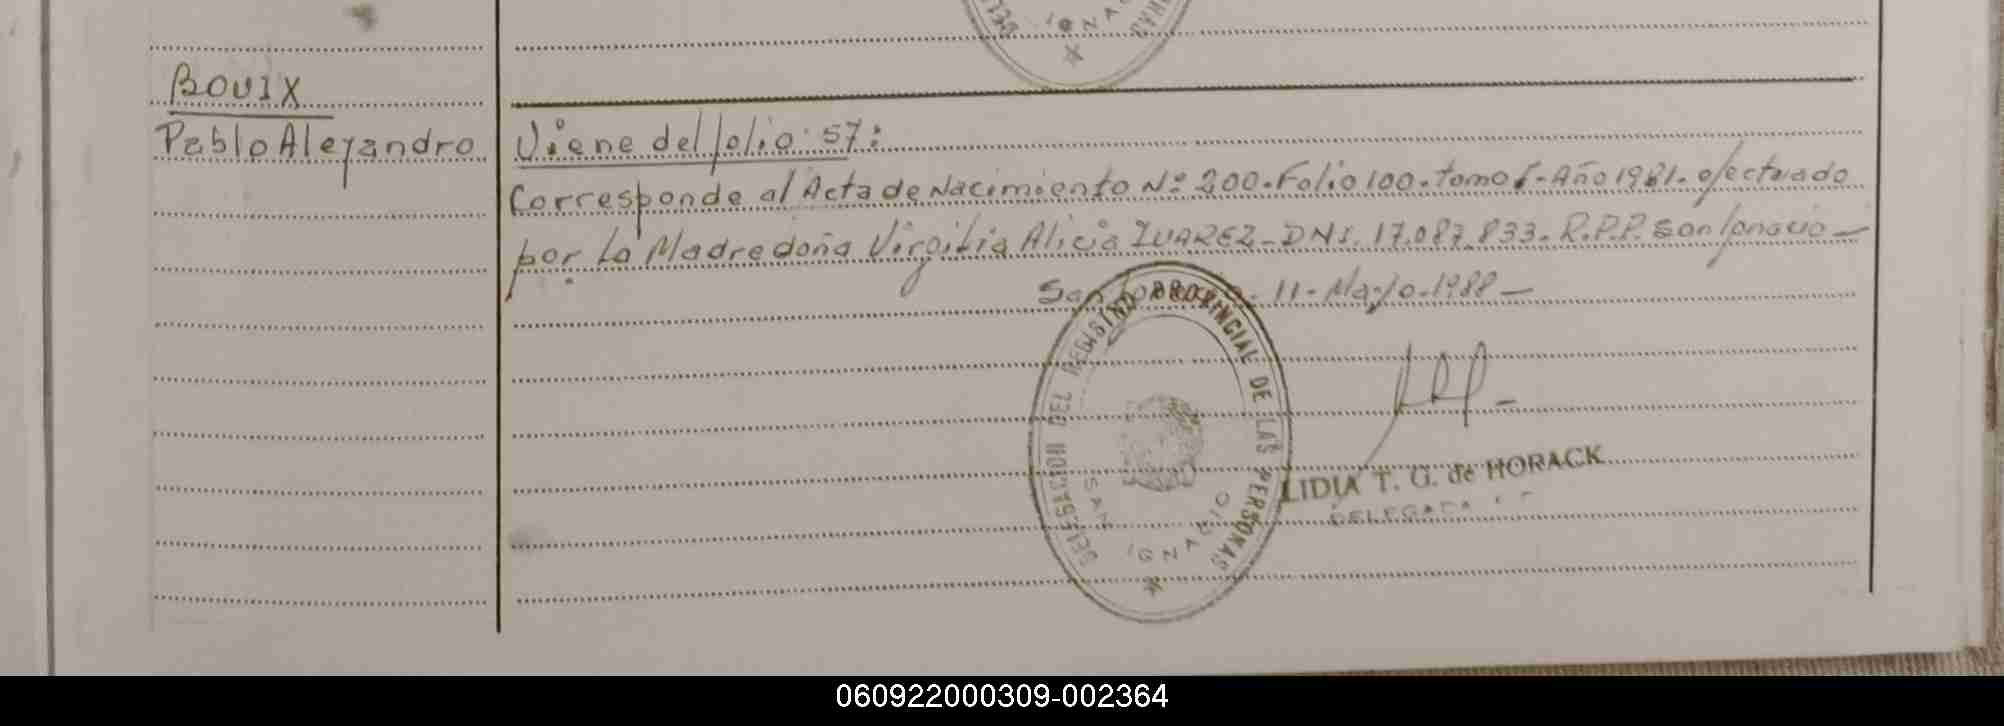 DELE
IGNA
ONAS
BOUIX
Pablo Alejandro
Viene del folio 57:
Corresponde al Acta de Nacimiento Nº 200. Folio 100. tomo I - Año 1981. efectuado
por La Madre doña Virgilia Alicia JUAREZ - DNI. 17.087.833. R.P.P. San Ignacio -
San Ignacio. 11 - Mayo - 1988 -
DELEGACION DEL REGISTRO PROVINCIAL DE LAS PERSONAS
SAN IGNACIO
LIDIA T. G. de HORACK
DELEGADA
060922000309-002364